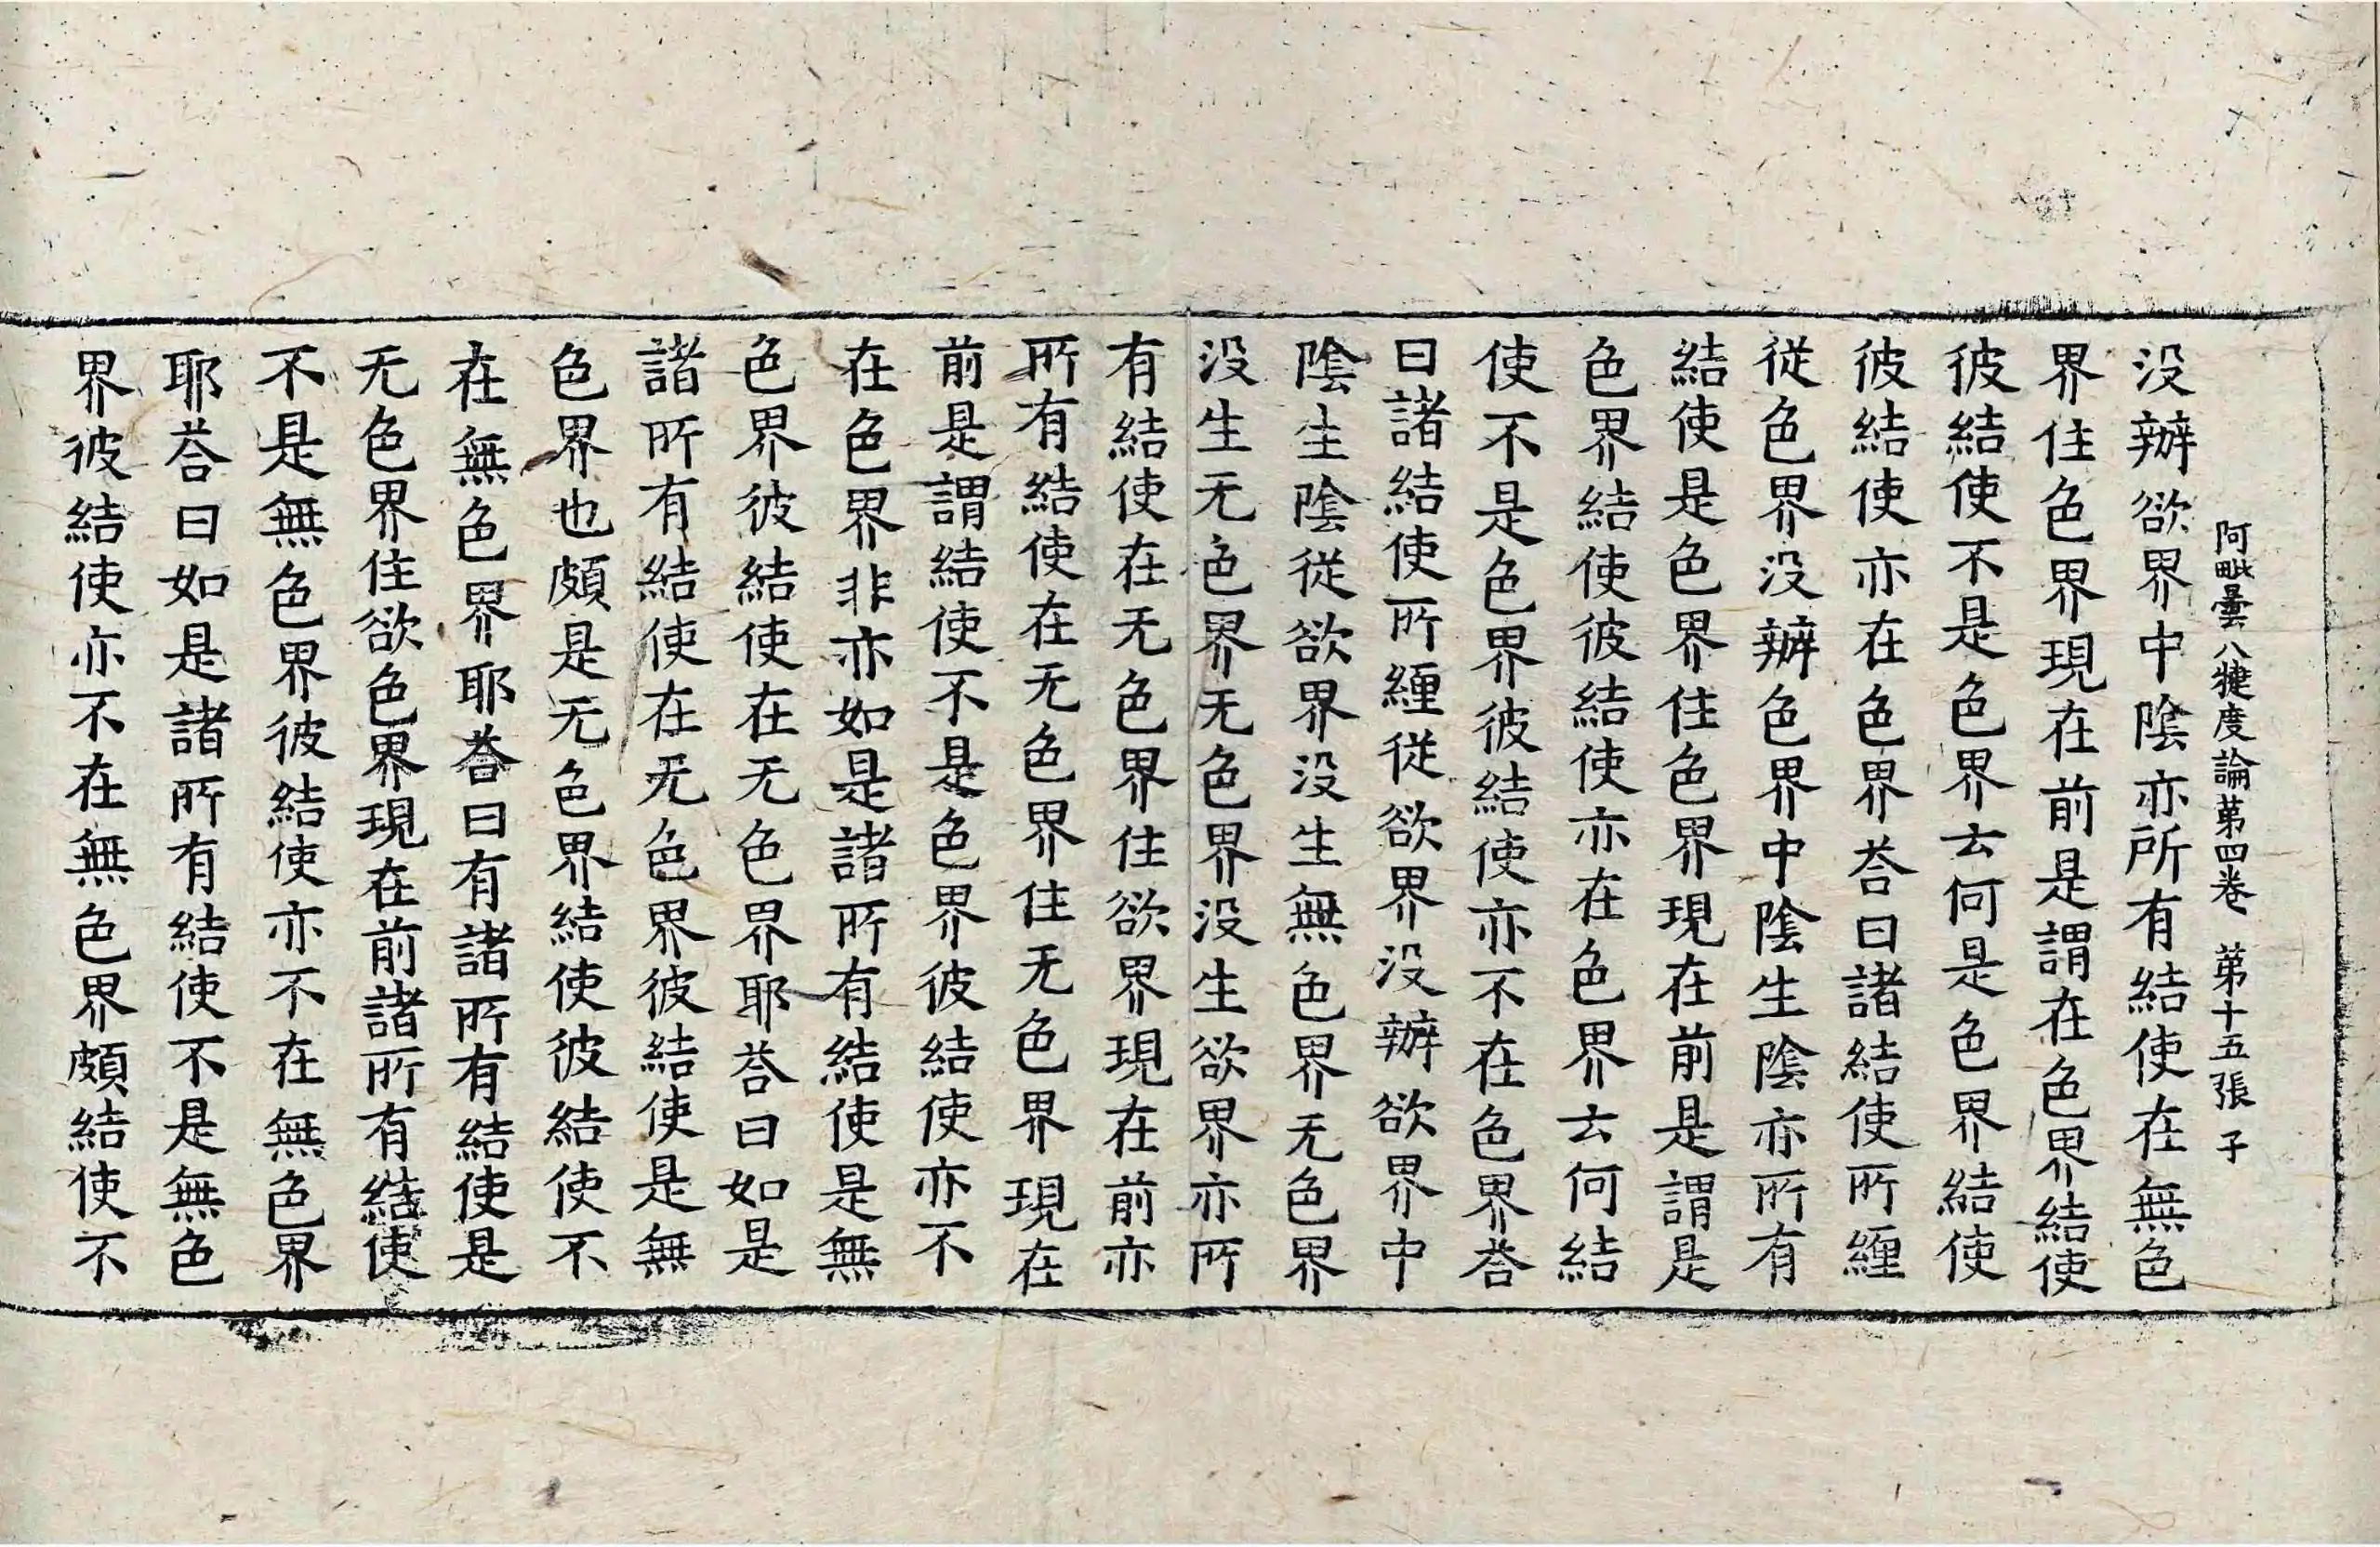 阿毗曇八犍度論第四卷 第十五張 子
没辦欲界中陰亦所有結使在無色
界住色界現在前是謂在色界結使
彼結使不是色界云何是色界結使
彼結使亦在色界荅曰諸結使所纏
従色界没辦色界中陰生陰亦所有
結使是色界住色界現在前是謂是
色界結使彼結使亦在色界云何結
使不是色界彼結使亦不在色界荅
曰諸結使所纏従欲界没辦欲界中
陰生陰従欲界没生無色界无色界
没生无色界无色界没生欲界亦所
有結使在无色界住欲界現在前亦
所有結使在无色界住无色界現在
前是謂結使不是色界彼結使亦不
在色界非亦如是諸所有結使是無
色界彼結使在无色界耶荅曰如是
諸所有結使在无色界彼結使是無
色界也頗是无色界結使彼結使不
在無色界耶荅曰有諸所有結使是
无色界住欲色界現在前諸所有結使
不是無色界彼結使亦不在無色界
耶荅曰如是諸所有結使不是無色
界彼結使亦不在無色界頗結使不